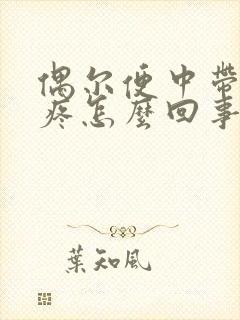 偶尔便中带
疼怎麼回事
葉知風